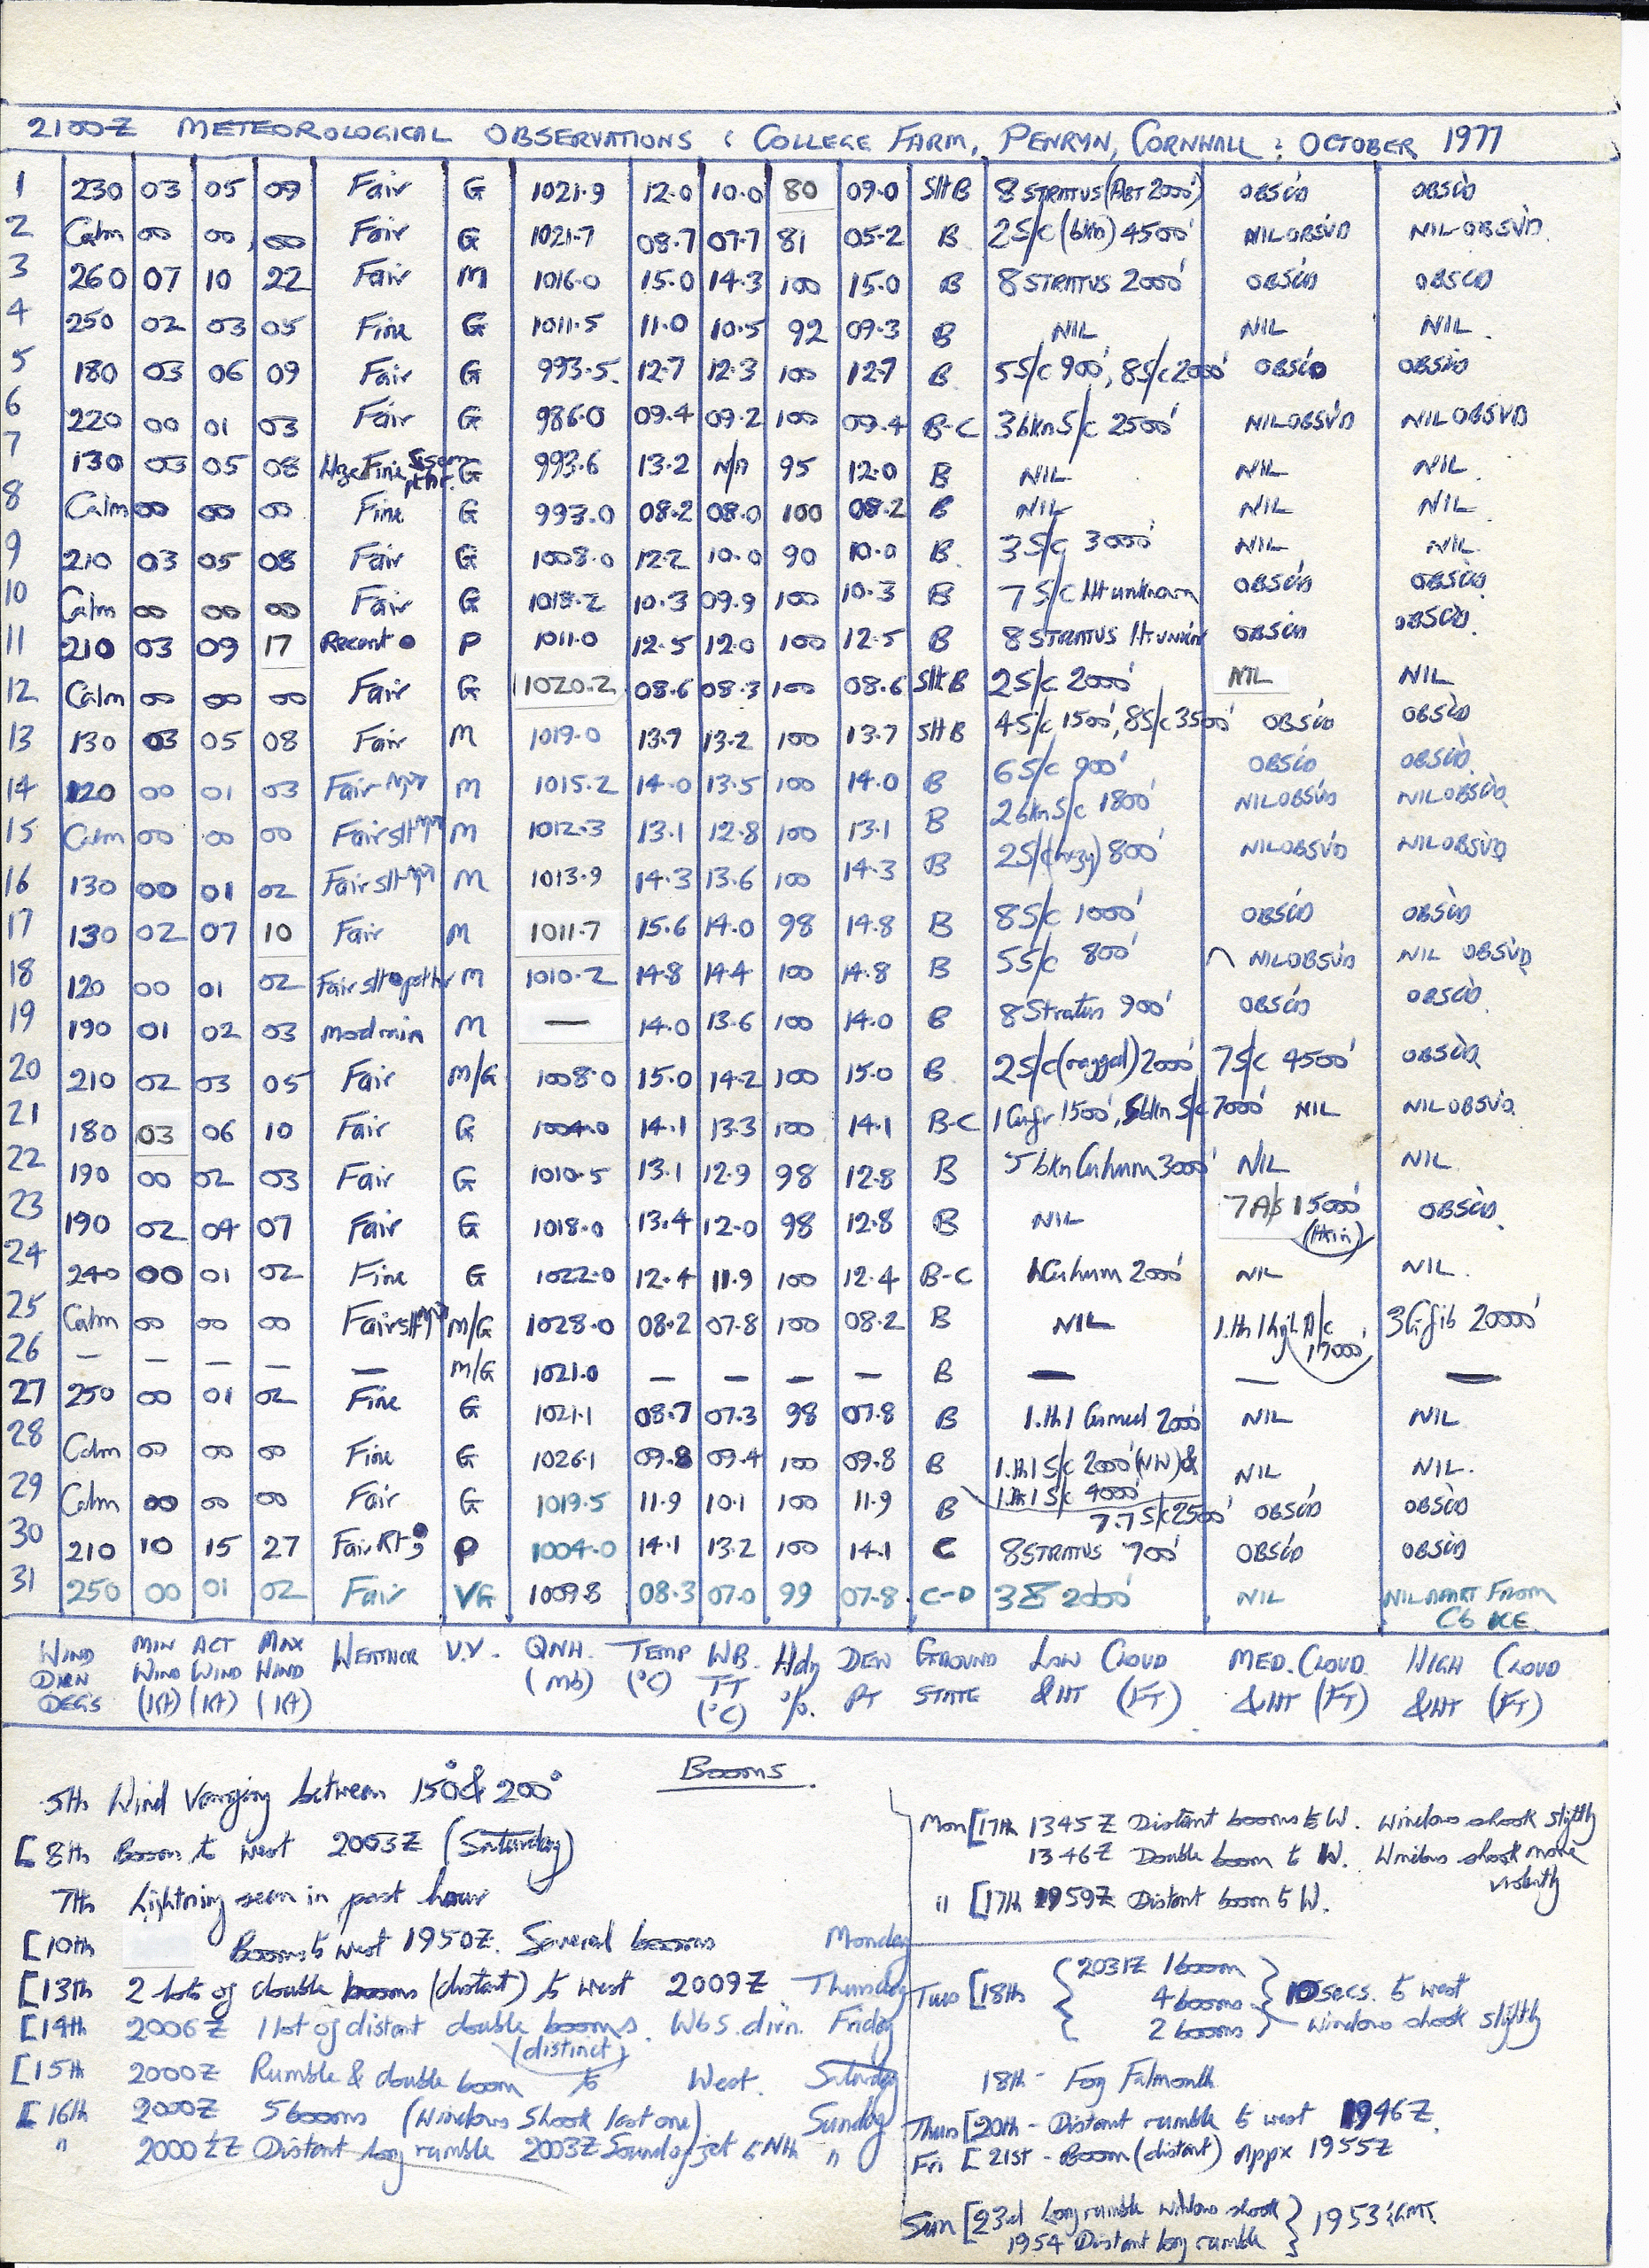 2100Z METEOROLOGICAL OBSERVATIONS : COLLEGE FARM, PENRYN, CORNWALL : OCTOBER 1977
1 230 03 05 09 Fair G 1021.9 12.0 10.0 80 09.0 SltB 8 STRATUS (ABT 2000') OBSC'D OBSC'D
2 Calm 00 00 00 Fair G 1021.7 08.7 07.7 81 05.2 B 2S/c (bkn) 4500' NIL OBSV'D NIL OBSV'D
3 260 07 10 22 Fair M 1016.0 15.0 14.3 100 15.0 B 8 STRATUS 2000' OBSC'D OBSCD
4 250 02 03 05 Fine G 1011.5 11.0 10.5 92 09.3 B NIL NIL NIL
5 180 03 06 09 Fair G 993.5 12.7 12.3 100 12.7 B 5S/c 900', 8S/c 2000' OBSC'D OBSC'D
6 220 00 01 03 Fair G 986.0 09.4 09.2 100 09.4 B-C 3bknS/c 2500' NIL OBSV'D NIL OBSV'D
7 130 03 05 08 Fine G 993.6 13.2 N/A 95 12.0 B NIL NIL NIL
8 Calm 00 00 00 Fine G 993.0 08.2 08.0 100 08.2 B NIL NIL NIL
9 210 03 05 08 Fair G 1008.0 12.2 10.0 90 10.0 B 3S/c 3000' NIL NIL
10 Calm 00 00 00 Fair G 1018.2 10.3 09.9 100 10.3 B 7S/c Ht unknown OBSC'D OBSC'D
11 210 03 09 17 Recent ● P 1011.0 12.5 12.0 100 12.5 B 8 STRATUS Ht OBSC'D OBSC'D
12 Calm 00 00 00 Fair G 1020.2 08.6 08.3 100 08.6 SltB 2S/c 2000' NIL NIL
13 130 03 05 08 Fair M 1019.0 13.7 13.2 100 13.7 SltB 4S/c 1500', 8S/c 3500' OBSC'D OBSC'D
14 120 00 01 03 Fair M 1015.2 14.0 13.5 100 14.0 B 6S/c 900' OBSC'D OBSC'D
15 Calm 00 00 00 Fair slt M 1012.3 13.1 12.8 100 13.1 B 2bknS/c 1800' NIL OBSV'D NIL OBSV'D
16 130 00 01 02 Fair slt M 1013.9 14.3 13.6 100 14.3 B 2S/c(hazy) 800' NIL OBSV'D NIL OBSV'D
17 130 02 07 10 Fair M 1011.7 15.6 14.0 98 14.8 B 8S/c 1000' OBSC'D OBSC'D
18 120 00 01 02 Fair slt M 1010.2 14.8 14.4 100 14.8 B 5S/c 800' NIL OBSV'D NIL OBSV'D
19 190 01 02 03 M — 14.0 13.6 100 14.0 B 8Stratus 900' OBSC'D OBSC'D
20 210 02 03 05 Fair M/G 1008.0 15.0 14.2 100 15.0 B 2S/c(ragged) 2000' 7S/c 4500' OBSC'D
21 180 03 06 10 Fair G 1004.0 14.1 13.3 100 14.1 B-C 1Cufr 1500', 5bkn S/c 7000' NIL NIL OBSV'D
22 190 00 02 03 Fair G 1010.5 13.1 12.9 98 12.8 B 5 bkn Cuhum 3000' NIL NIL
23 190 02 04 07 Fair G 1018.0 13.4 12.0 98 12.8 B NIL 7A/s 15000' (thin) OBSC'D
24 240 00 01 02 Fine G 1022.0 12.4 11.9 100 12.4 B-C 1Cuhum 2000' NIL NIL
25 Calm 00 00 00 Fair slt M/G 1028.0 08.2 07.8 100 08.2 B NIL 1.th 1 high A/c 17000' 3Cifib 20000'
26 — — — — — M/G 1021.0 — — — — B — — —
27 250 00 01 02 Fine G 1021.1 08.7 07.3 98 07.8 B 1.th 1 Cumed 2000' NIL NIL
28 Calm 00 00 00 Fine G 1026.1 09.8 09.4 100 09.8 B 1.th 1 S/c 2000'(NW) & 1.th 1 S/c 4000' NIL NIL
29 Calm 00 00 00 Fair G 1019.5 11.9 10.1 100 11.9 B 7.7S/c 2500' OBSC'D OBSC'D
30 210 10 15 27 Fair Rt P 1004.0 14.1 13.2 100 14.1 C 8STRATUS 700' OBSC'D OBSC'D
31 250 00 01 02 Fair VG 1009.8 08.3 07.0 99 07.8 C-D 2000' NIL NIL APART FROM Cb ICE
WIND DIRN DEGS MIN WIND (Kt) ACT WIND (Kt) MAX WIND (Kt) WEATHER V.V. QNH (mb) TEMP (°C) WB. TT (°C) Hdy %. DEW PT GROUND STATE LOW CLOUD & HT (FT) MED. CLOUD & HT (FT) HIGH CLOUD & HT (FT)
Booms
5th Wind Varying between 150° & 200°
[8th Boom to west 2003Z (Saturday)
7th Lightning seen in past hour
[10th Booms to west 1950Z. Several booms Monday
[13th 2 lots of double booms (distant) to west 2009Z Thursday
[14th 2006Z 1 lot of distant double booms. WbS. dirn. Friday
(distinct)
[15th 2000Z Rumble & double boom to West. Saturday
[16th 2000Z 5 booms (Windows shook last one) Sunday
" 2000½Z Distant long rumble 2003Z Sound of jet to Nth "
Mon [17th 1345Z Distant booms to W. Windows shook slightly
1346Z Double boom to W. Windows shook more violently
" [17th 1959Z Distant boom to W.
Tues [18th { 2031Z 1 boom
4 booms } 10 secs. to west
2 booms Windows shook slightly
18th - Fog Falmouth
Thurs [20th - Distant rumble to west 1946Z.
Fri [21st - Boom (distant) Appx 1955Z
Sun [23rd Long rumble windows shook } 1953 GMT.
1954 Distant long rumble